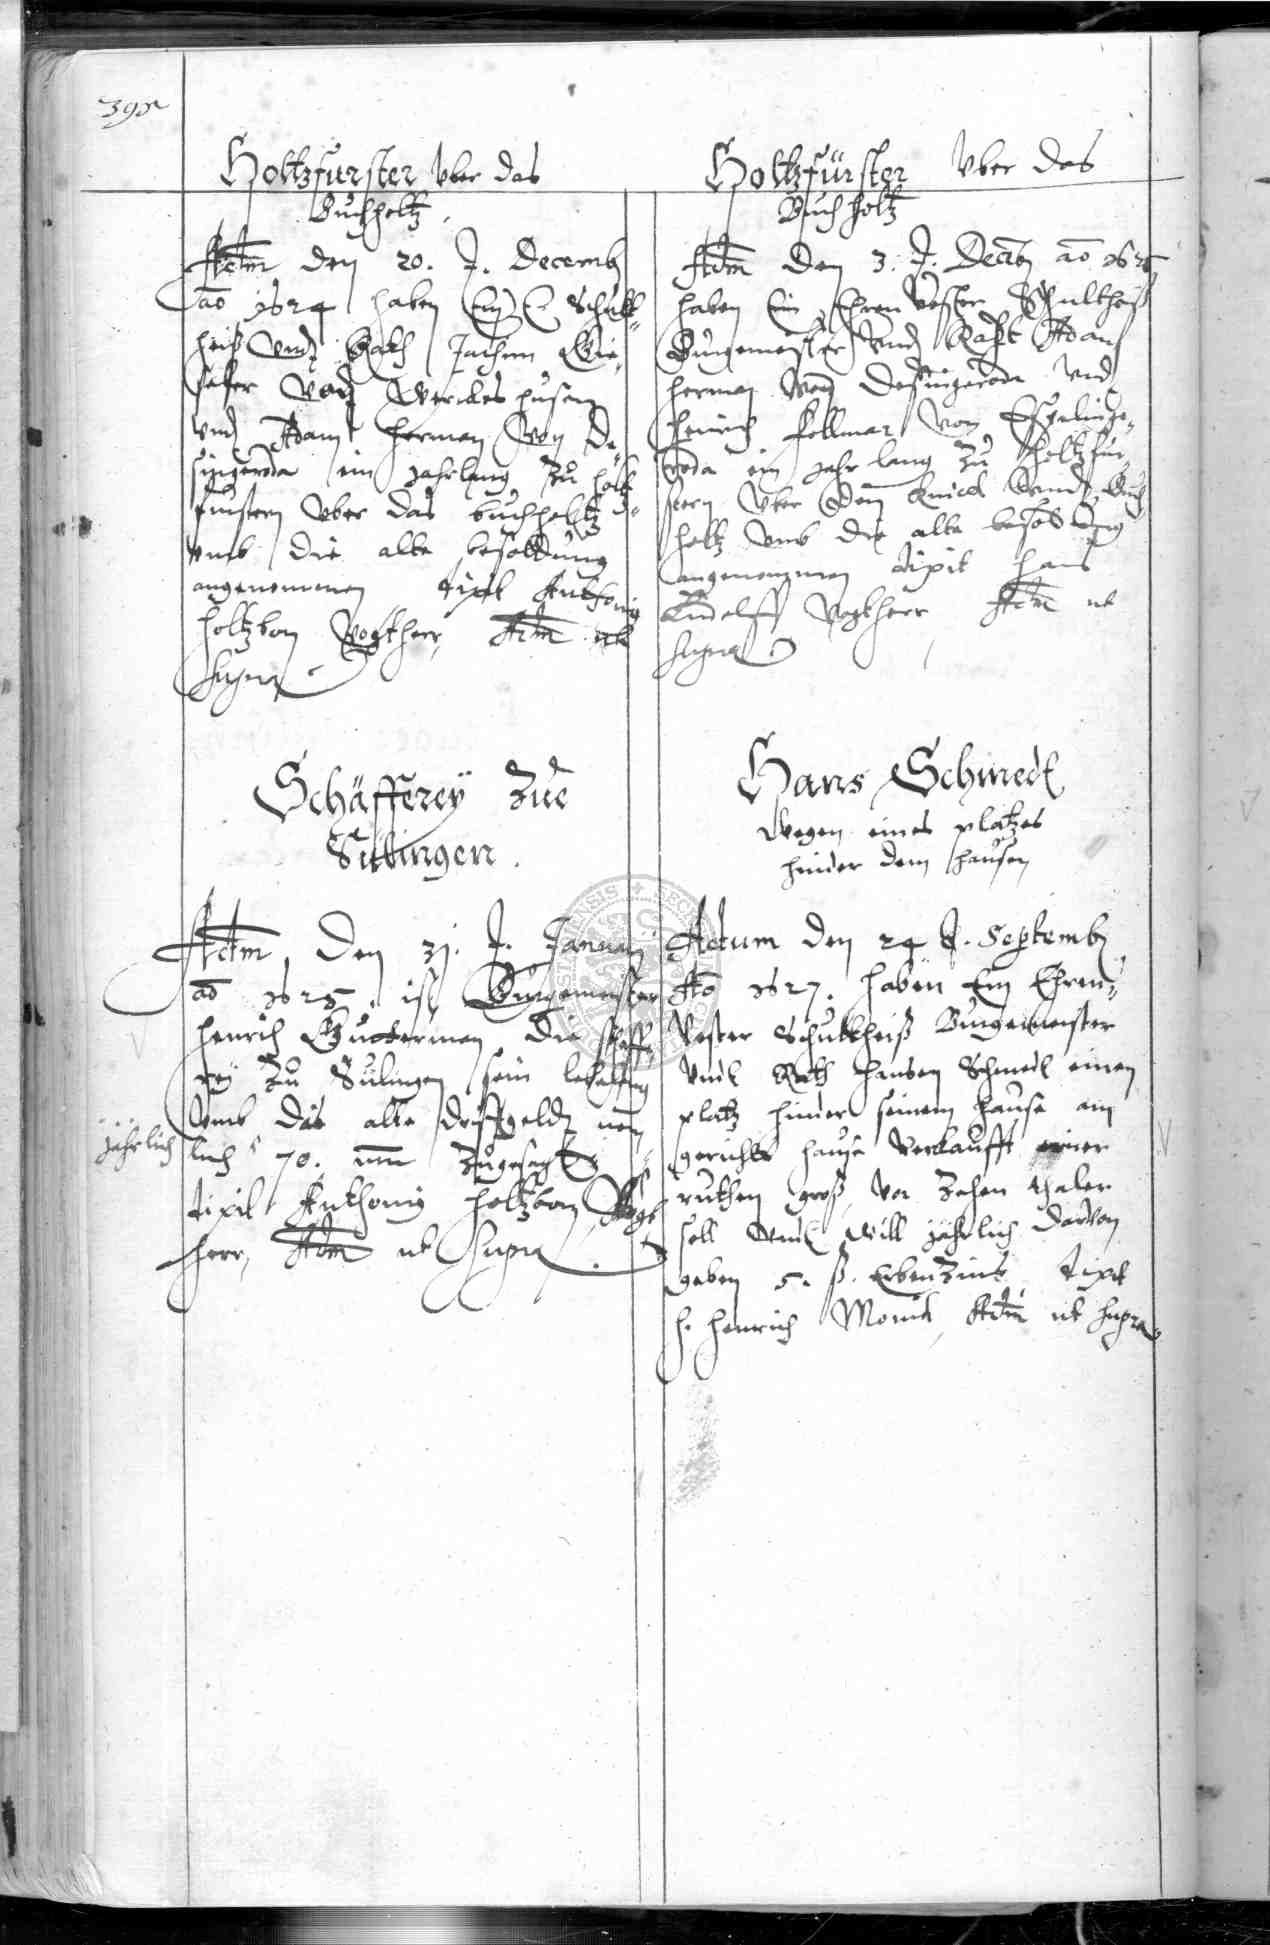 398
Holtzfurster vber das
Buchholtz.
Actum den 20. X. Decemb
ao 1624 haben Ein E. Schult-
heiß vnd Rath Jachim
von Werckeshusen
vnd Adam Herman von De-
singeroda ein jahrlang zu holtz-
fürstern vber das buchholtz
vmb die alte besoldung
angenommen dixit Anthoniy
holtzbon Vogtherr, Actum ut
supra.
Schäfferey Zue
Sülingen.
Actum den 31. X. Januarij
ao 1625. ist Burgemeister
Henrich Gütterman die scheffe-
rey zu Sülingen sein lebelang
vmb das alte driftgeldt nem-
jährlich
lich 70. zugesagt
dixit Anthoniy holtzbon Vogt
herr, Actum ut supra.
Holtzfürster vber das
Buchholtz
Actum den 3. X. Decemb ao 1625
haben Ein Ehrenvester Schultheiß
Burgemeister vnd Raht Adam
Herman von Desingeroda vnd
Heinrich Follmar von Esplinge-
roda ein jahr lang zu holtzfür-
stern vber den vnd Buch
holtz vmb die alte besoldung
angenommen dixit Hans
Rudolff Vogtherr Actum ut
supra
Hans Schmedt
wegen eines platzes
hinder dem hausen
Actum den 24 X. Septemb
Ao 1627. haben Ein Ehren-
vester Schultheiß Burgemeister
vndt Rath Hansen Schmedt einen
platz hinder seinem hause am
gerichts hause verkaufft einer
ruthen groß, vor zehen thaler
soll vndt will jährlich darvon
geben 5. ß. Erbenzins dixit
H. Henrich Mondt, Actum ut supra